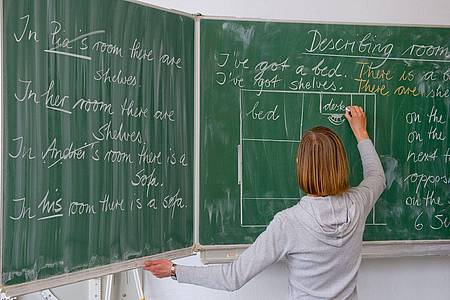 In Pia's room there are
shelves
In her room there are
Shelves.
In Andrei's room there is a
Sofa.
In his room there is a sofa.
Describing room
I've got a bed. There is a b
I've got shelves. There are she
bed
desk
on the
on the
next t
opposi
on the
6 Su